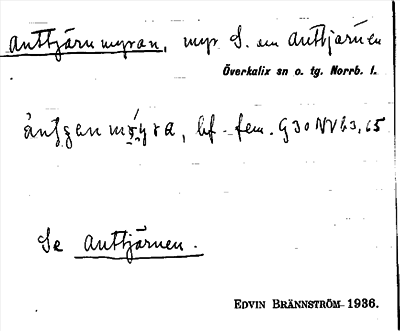 Anttjärnmyran, myr S. om Anttjärnen
Överkalix sn o. tg. Norrb. l.
bf. fem. G30NV63,65
Se Anttjärnen.
EDVIN BRÄNNSTRÖM 1936.